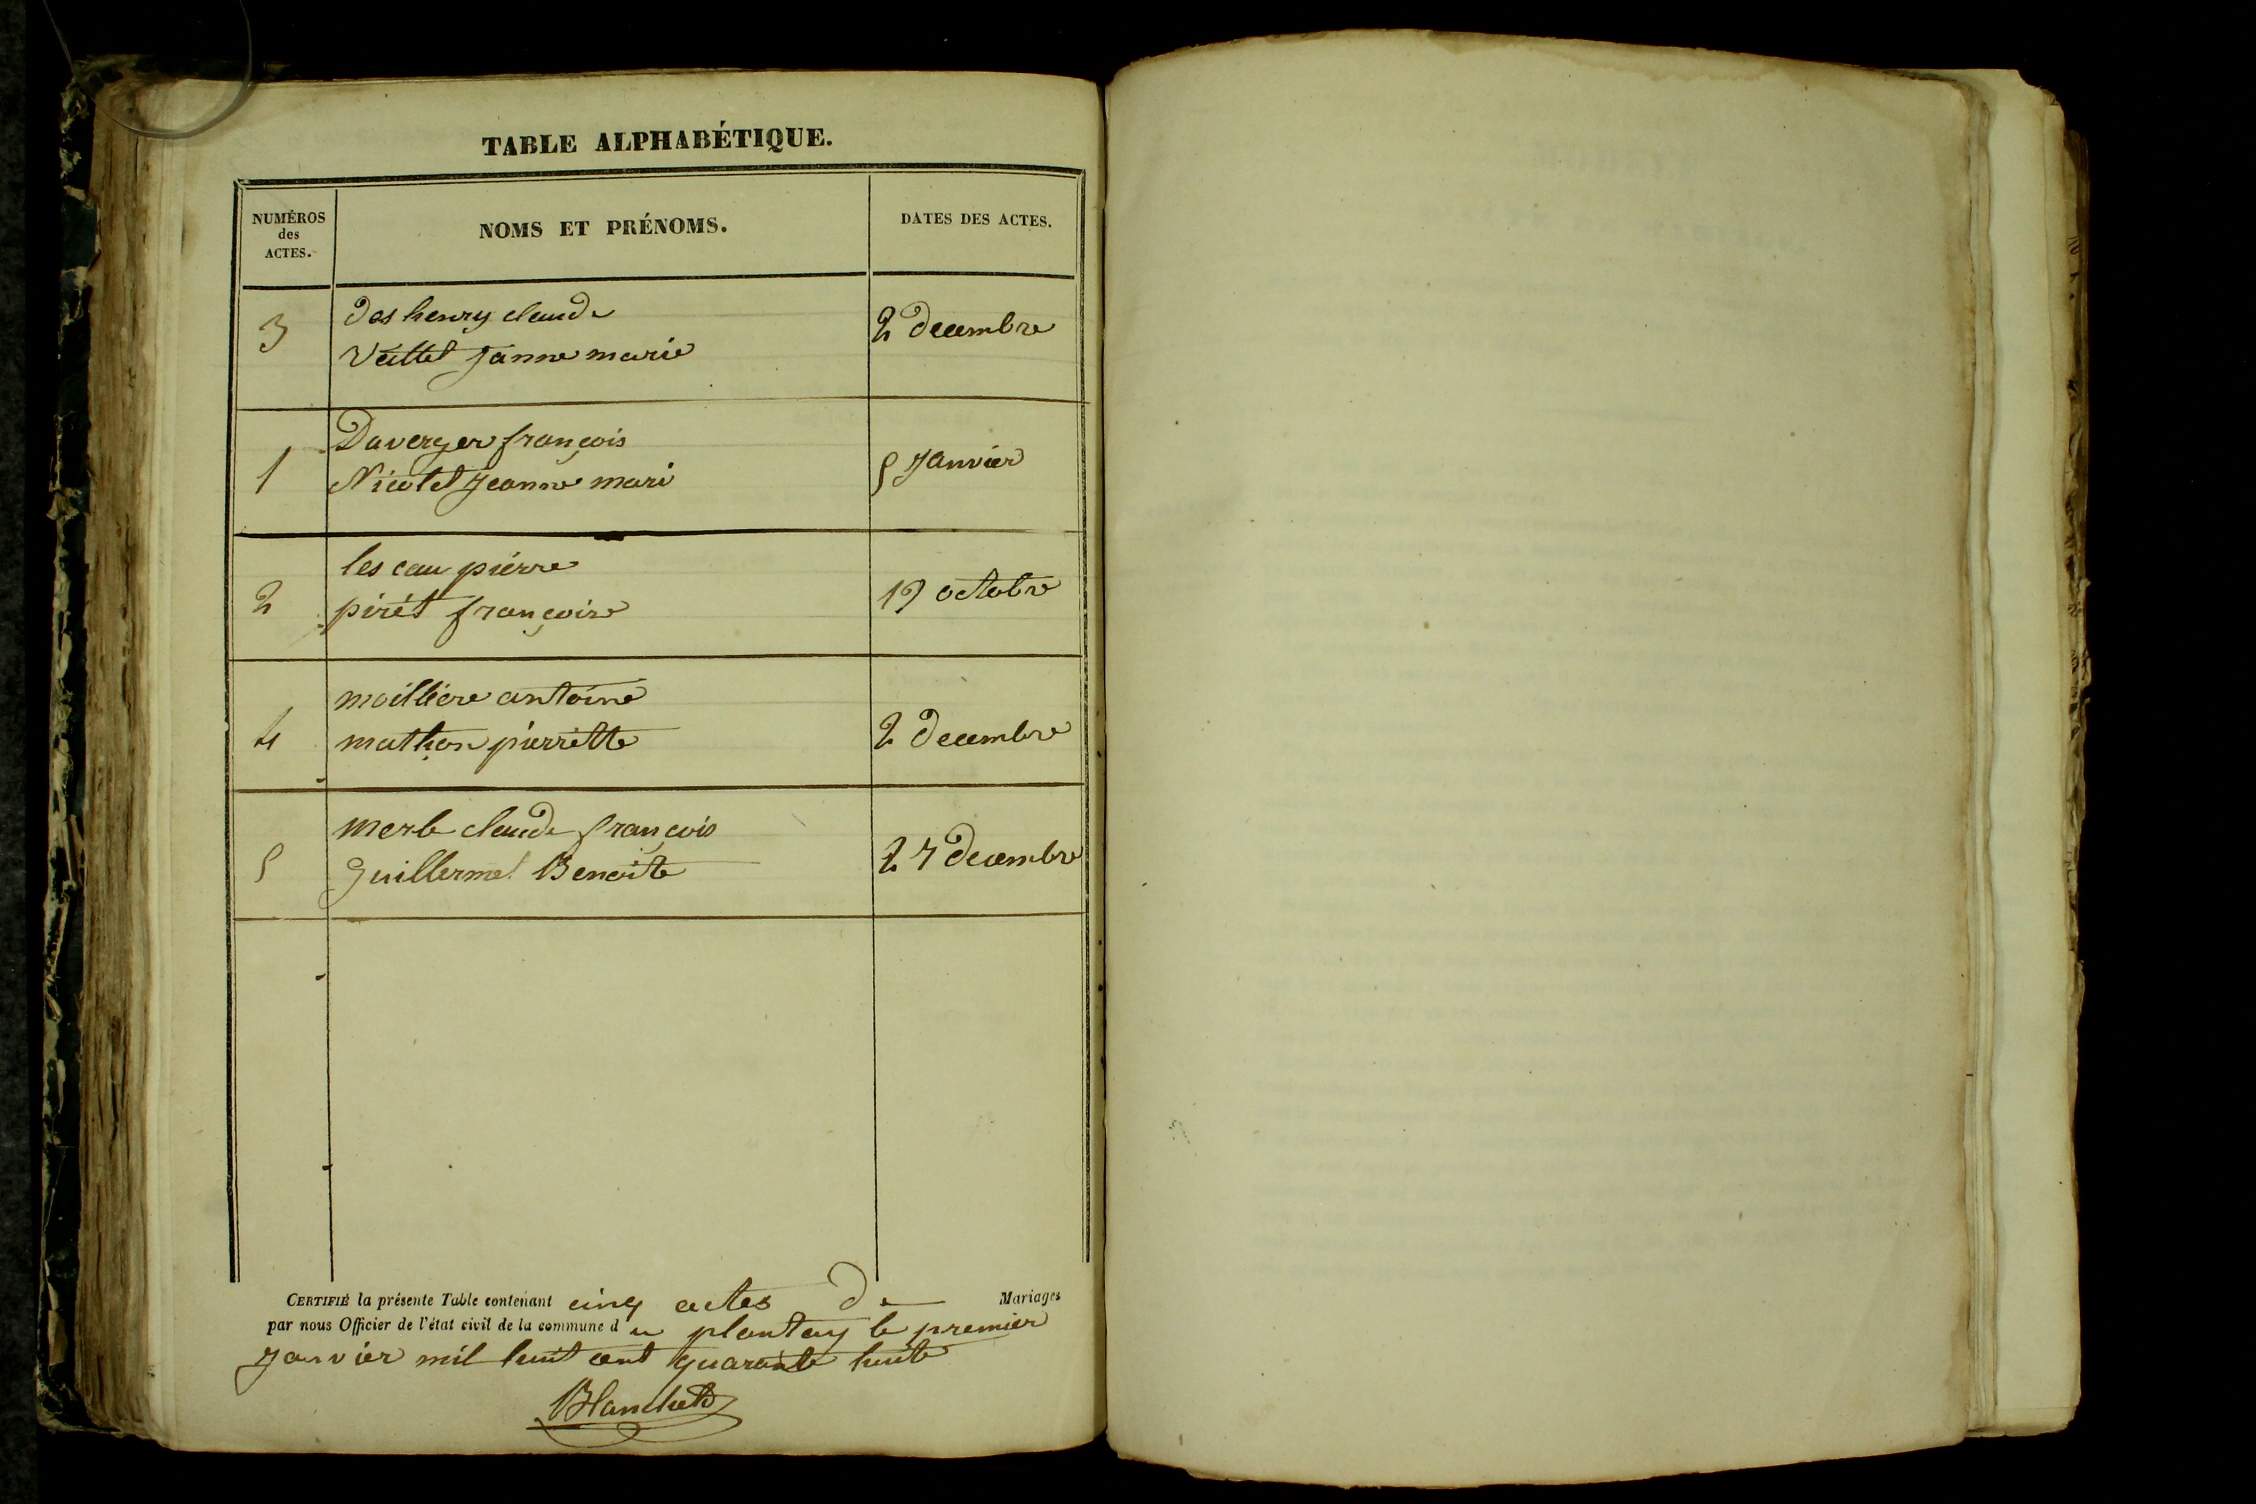 TABLE ALPHABÉTIQUE.
NUMÉROS
des
ACTES.
NOMS ET PRÉNOMS.
DATES DES ACTES.
3
des henry claude
Veillet Janne marie
2 decembre
1
Daverger françois
Nicolet Jeanne mari
5 Janvier
2
les cau pierre
pirét françoise
19 octobre
4
moillière antoine
mathon pierrette
2 decembre
5
merle claude françois
Guillermet Benoite
27 decembre
CERTIFIÉ la présente Table contenant cinq actes De Mariages
par nous Officier de l'état civil de la commune du plantay le premier
Janvier mil huit cent quarante huite
Blanchet